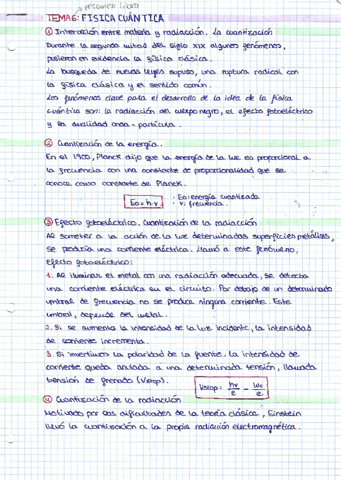 resumen libro
TEMA 6: FÍSICA CUÁNTICA
① Interacción entre materia y radiación. La cuantización
Durante la segunda mitad del siglo XIX algunos fenómenos,
pusieron en evidencia la física clásica.
La búsqueda de nuevas leyes supuso, una ruptura radical con
la física clásica y el sentido común.
Los fenómenos clave para el desarrollo de la idea de la física
cuántica son: la radiación del cuerpo negro, el efecto fotoeléctrico
y la dualidad onda - partícula.
② Cuantización de la energía.
En el 1900, Planck dijo que la energía de la luz es proporcional a
la frecuencia con una constante de proporcionalidad que se
conoce como constante de Planck.
E₀ = h·ν
· E₀: energía cuantizada
· ν: frecuencia
③ Efecto fotoeléctrico. Cuantización de la radiación
Al someter a la acción de la luz determinadas superficies metálicas,
se producía una corriente eléctrica. Llamó a este fenómeno,
efecto fotoeléctrico:
1. Al iluminar el metal con una radiación adecuada, se detecta
una corriente eléctrica en el circuito. Por debajo de un determinado
umbral de frecuencia no se produce ninguna corriente. Este
umbral, depende del metal.
2. Si se aumenta la intensidad de la luz incidente, la intensidad
de corriente incrementa.
3. Si invertimos la polaridad de la fuente, la intensidad de
corriente queda anulada a una determinada tensión, llamada
tensión de frenado (Vstop).
Vstop = hν/e - W₀/e
④ Cuantización de la radiación
Motivado por las dificultades de la teoría clásica, Einstein
llevó la cuantización a la propia radiación electromagnética.